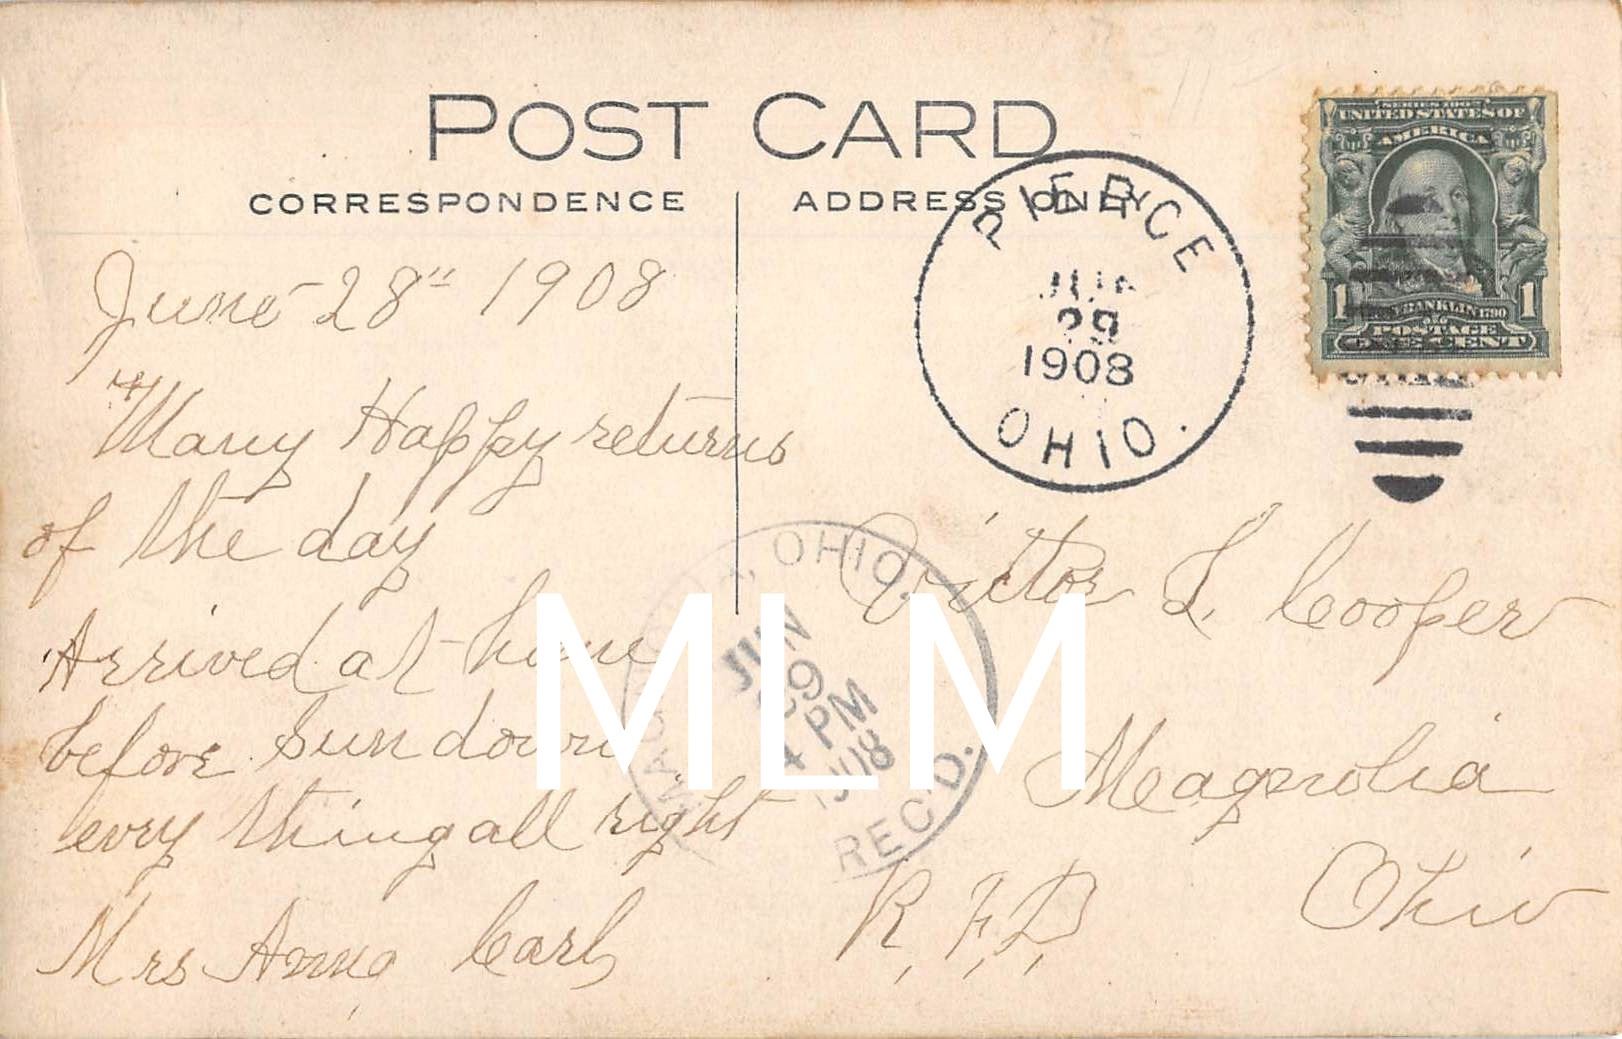 POST CARD
CORRESPONDENCE
ADDRESS ONLY
PIERCE
JUN
29
1908
OHIO.
SERIES 1902
UNITED STATES OF
AMERICA
1 FRANKLIN 1790 1
POSTAGE
ONE CENT
June 28" 1908
Many Happy returns
of the day
Arrived at home
before sun down
evry thing all right
Mrs Anna Carl
MAGNOLIA, OHIO.
JUN
29
4 PM
1908
REC'D.
Victor L. Cooper
Magnolia
Ohio
R, F, D,
MLM